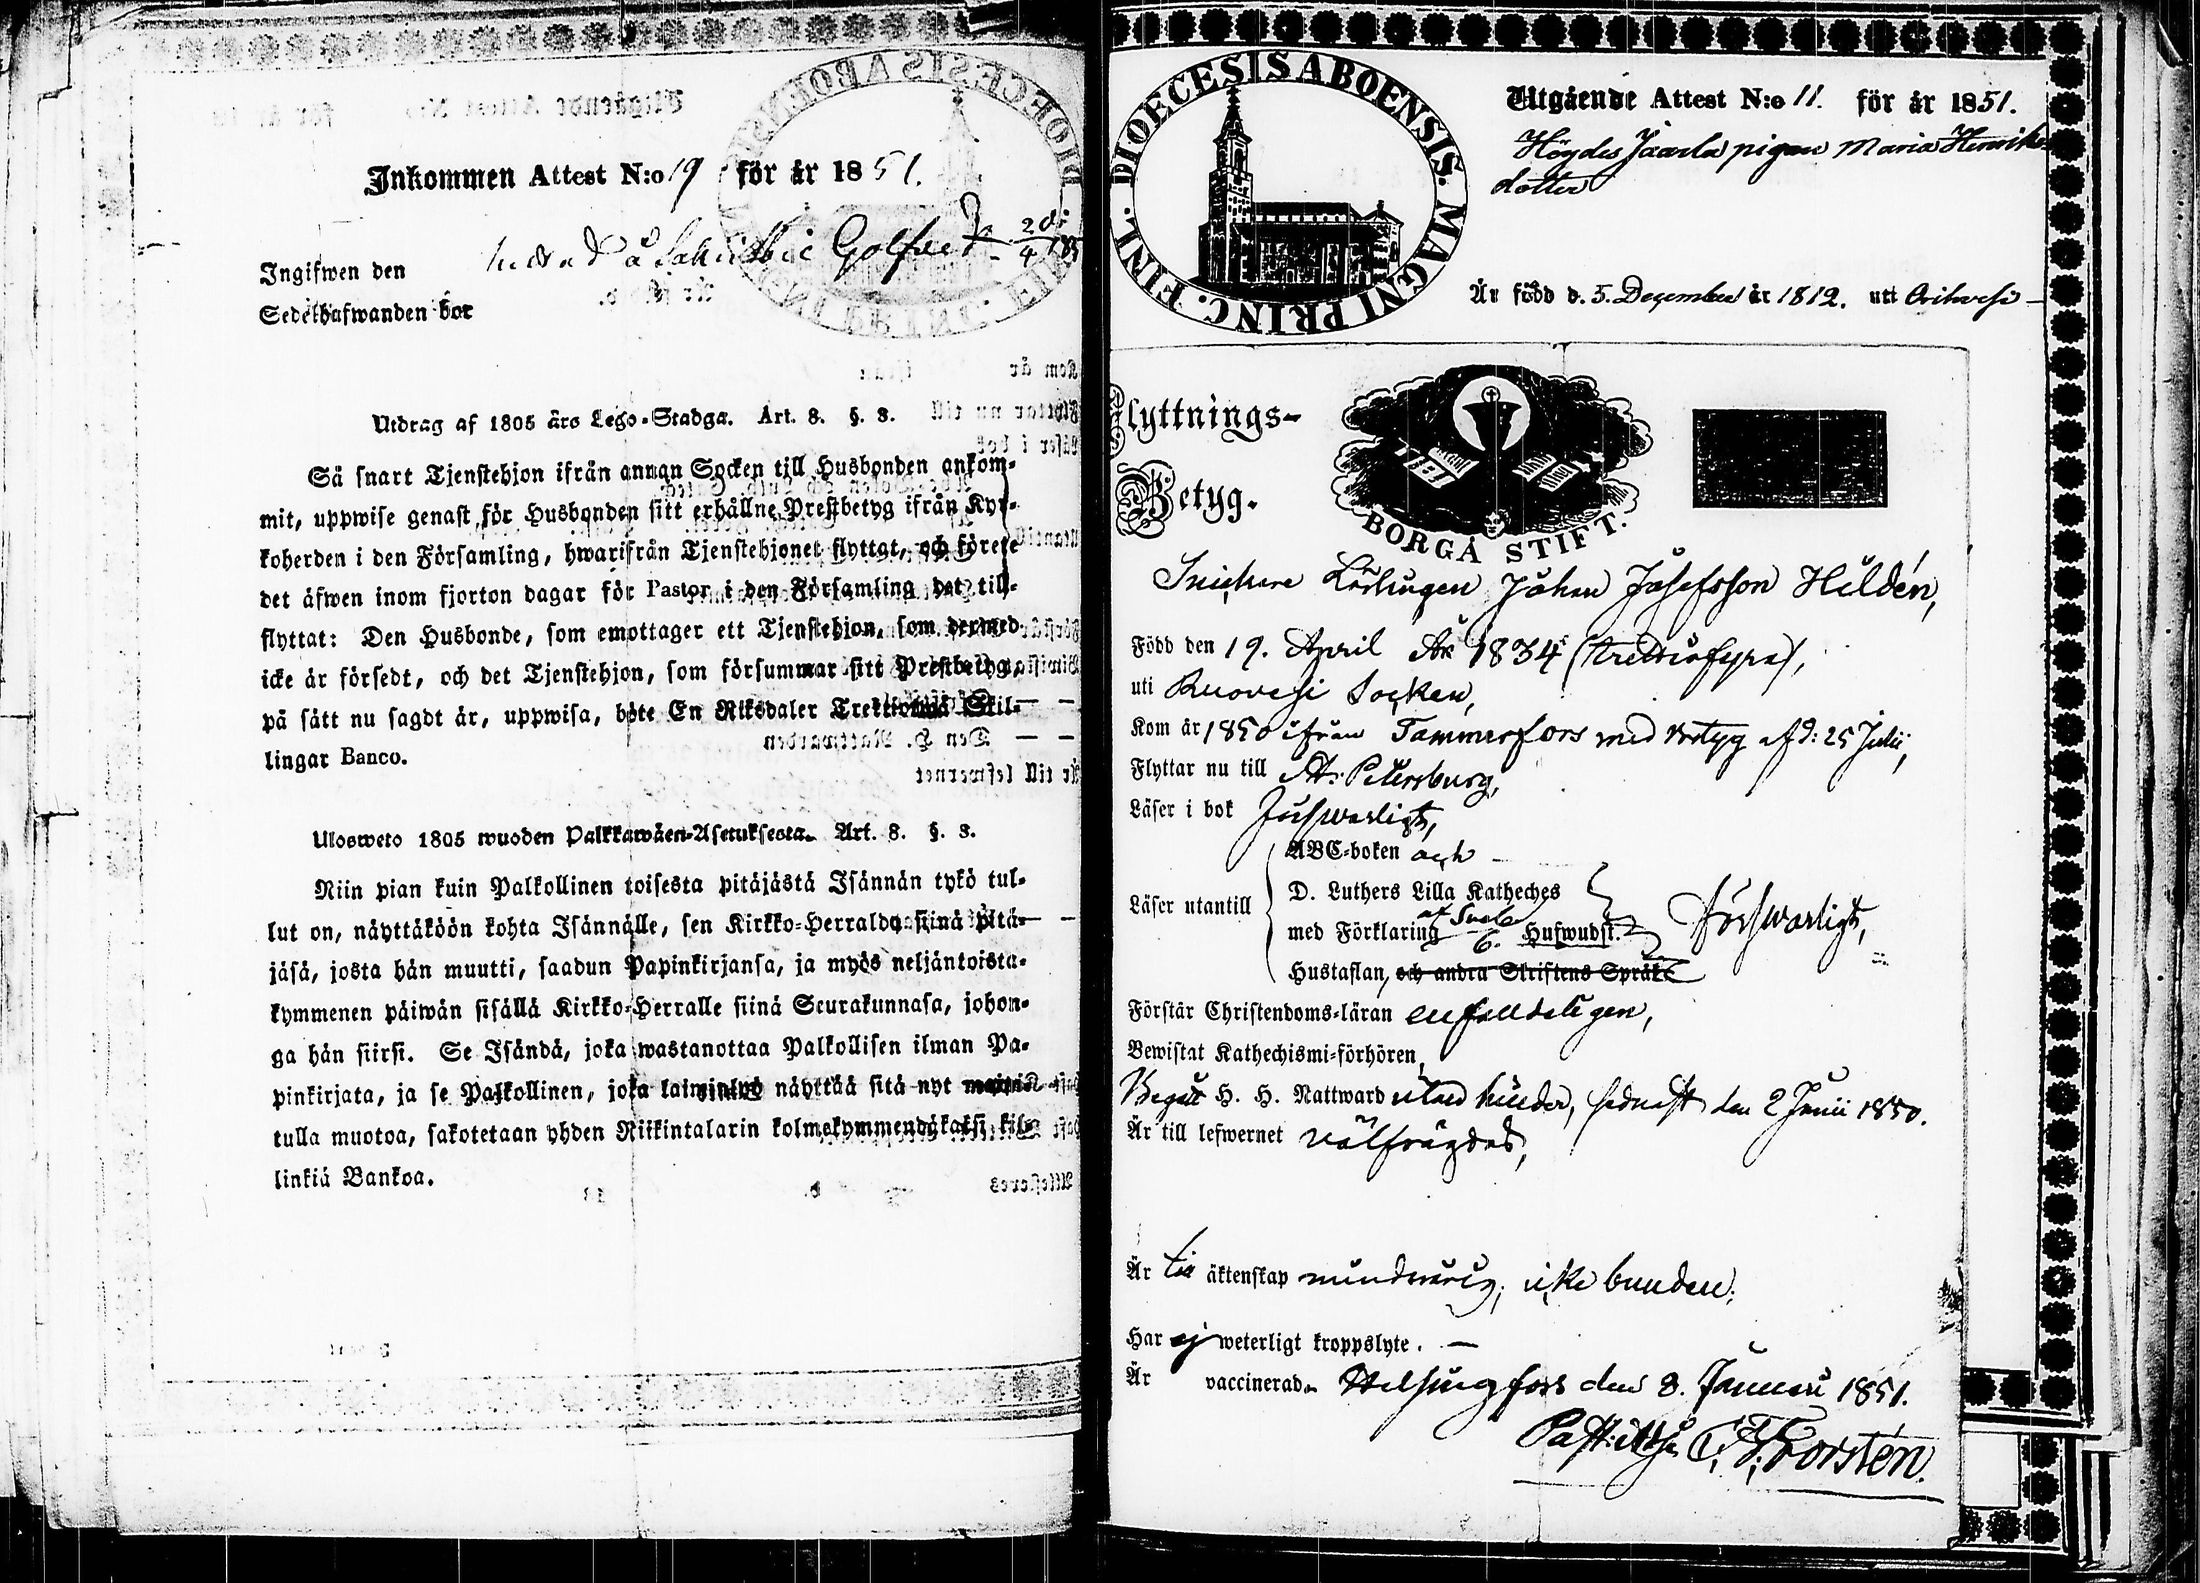 Inkommen Attest N:o 19 för år 1851.
Golfred
Ingifwen den
Sedelhafwanden bor
Utdrag af 1805 års Lego-Stadga. Art. 8. §. 3.
Så snart Tjenstehjon ifrån annan Socken till Husbonden ankom-
mit, uppwise genast för Husbonden sitt erhållne Prestbetyg ifrån Kyr-
koherden i den Församling, hwarifrån Tjenstehjonet flyttat, och förete
det äfwen inom fjorton dagar för Pastor i den Församling det till-
flyttat: Den Husbonde, som emottager ett Tjenstehjon, som dermed
icke är försedt, och det Tjenstehjon, som försummar sitt Prestbetyg,
på sätt nu sagdt är, uppwisa, böte En Riksdaler Trettiotwå Skil-
lingar Banco.
Ulosweto 1805 wuoden Palkkawäen-Asetuksesta. Art. 8. §. 3.
Niin pian kuin Palkollinen toisesta pitäjästä Isännän tykö tul-
lut on, näyttäköön kohta Isännälle, sen Kirkko-Herralda siinä pitä-
jäsä, josta hän muutti, saadun Papinkirjansa, ja myös neljäntoista-
kymmenen päiwän sisällä Kirkko-Herralle siinä Seurakunnasa, johon-
ga hän siirsi. Se Isändä, joka wastanottaa Palkollisen ilman Pa-
pinkirjata, ja se Palkollinen, joka laiminlyö näyttää sitä nyt mainit-
tulla muotoa, sakotetaan yhden Riikintalarin kolmekymmendäkaksi kil-
linkiä Bankoa.
DIOECESIS ABOENSIS. MAGNI PRINC. FINL.
Utgående Attest N:o 11. för år 1851.
Höydes Jaarla pigan Maria Henriks-
dotter
Är född d. 5. December år 1812. uti Orihvesi
Flyttnings-
Betyg.
BORGÅ STIFT.
Snickare Lärlingen Johan Josefsson Heldén,
Född den 19. April År 1834 (trettiofyra),
uti Ruovesi Socken,
Kom år 1850 ifrån Tammerfors med betyg af d: 25 Julii,
Flyttar nu till St: Petersburg,
Läser i bok försvarligt,
ABC-boken och
Läser utantill
D. Luthers Lilla Katheches
med Förklaring af Sveb. 6. Hufwudst.
försvarligt,
Hustaflan, och andra Skriftens Språk
Förstår Christendoms-läran enfaldeligen,
Bewistat Kathechismi-förhören,
Begått H. H. Nattward utan hinder, sednast den 2 Junii 1850.
Är till lefwernet välfrägdad,
Är till äktenskap mindrårig, icke bunden;
Har ej weterligt kroppslyte.
Är vaccinerad. Helsingfors den 8. Januari 1851.
C. F. Forstén.